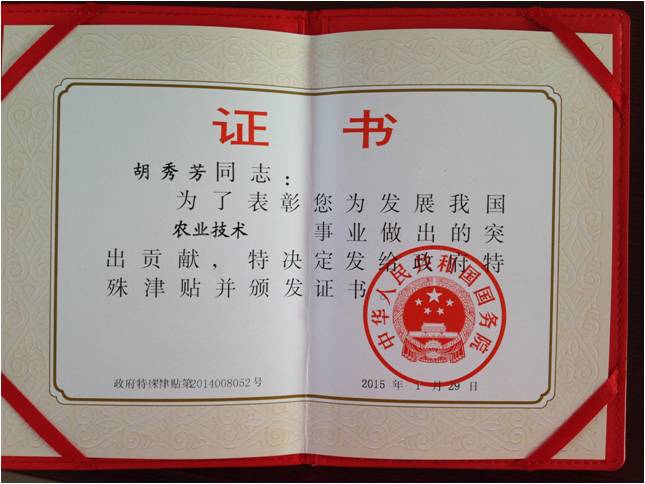 证书
胡秀芳同志：
为了表彰您为发展我国
农业技术 事业做出的突
出贡献，特决定发给政府特
殊津贴并颁发证书
中华人民共和国国务院
政府特殊津贴第2014008052号
2015 年 1 月 29 日